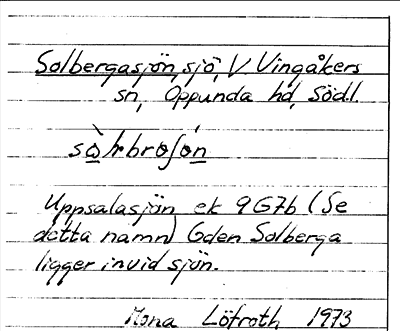 Solbergasjön, sjö, V. Vingåkers
sn, Oppunda hd, Södl.
Uppsalasjön ek 9G7b (Se
detta namn) Gden Solberga
ligger invid sjön.
Mona Löfroth 1973